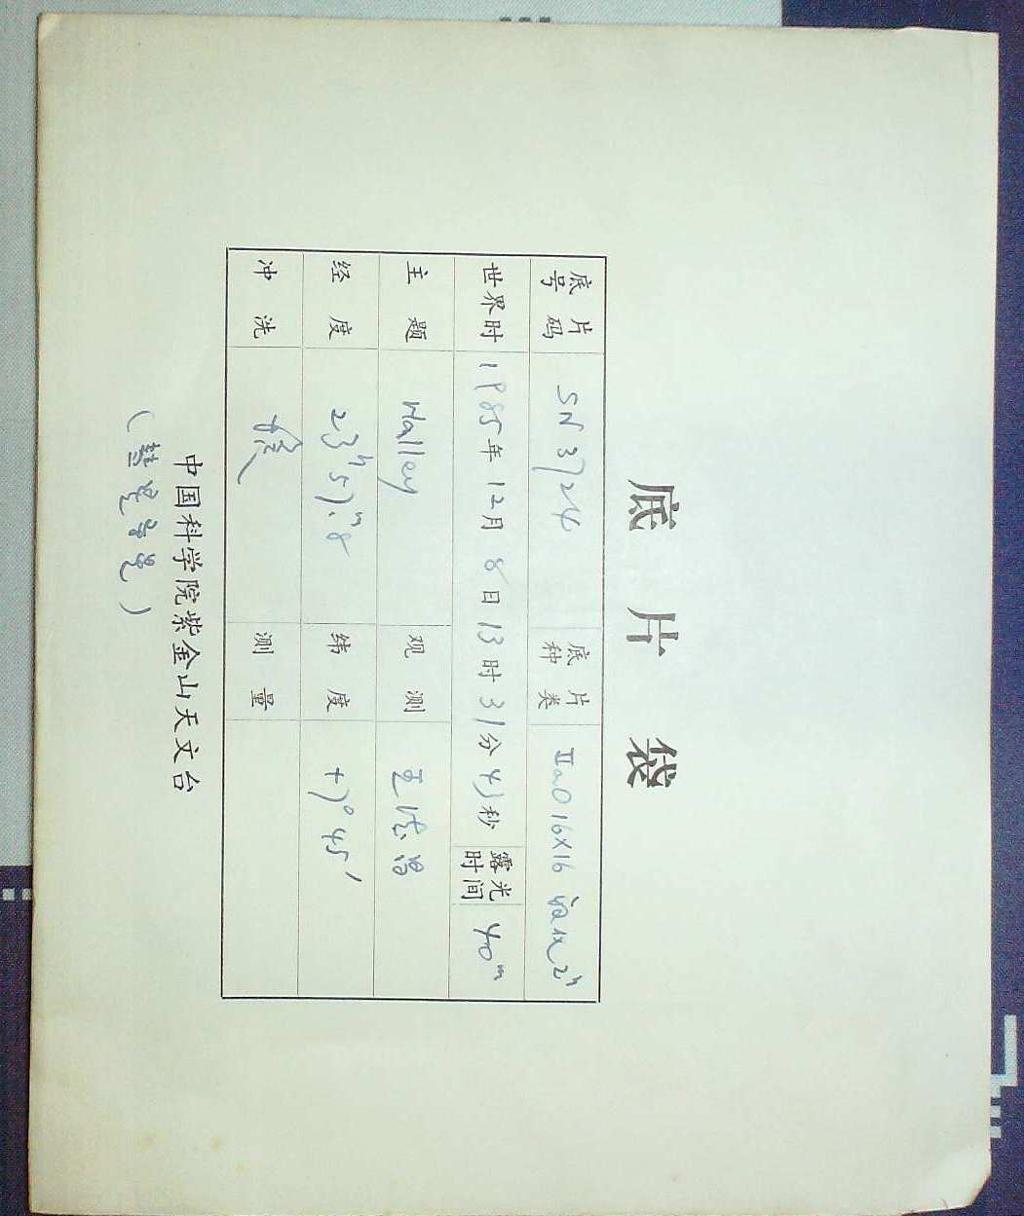 底片袋
底片号码 SN3724 底片种类 IIaO 16×16 敏化2h
世界时 1985年12月8日13时31分43秒 露光时间 40m
主题 Halley 观测
经度 23h57m.8 纬度 +7°45′
冲洗 测量
中国科学院紫金山天文台